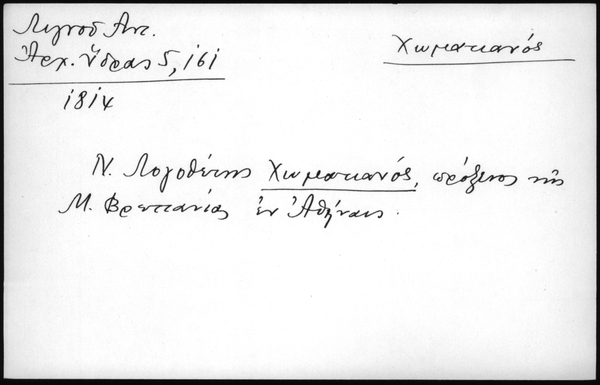 Λιγνοῦ Αντ.
Ἀρχ. Ὕδρας 5, 161
Χωματιανός
1814
Ν. Λογοθέτης Χωματιανός, πρόξενος τῆς
Μ. Βρεττανίας ἐν Ἀθήναις.